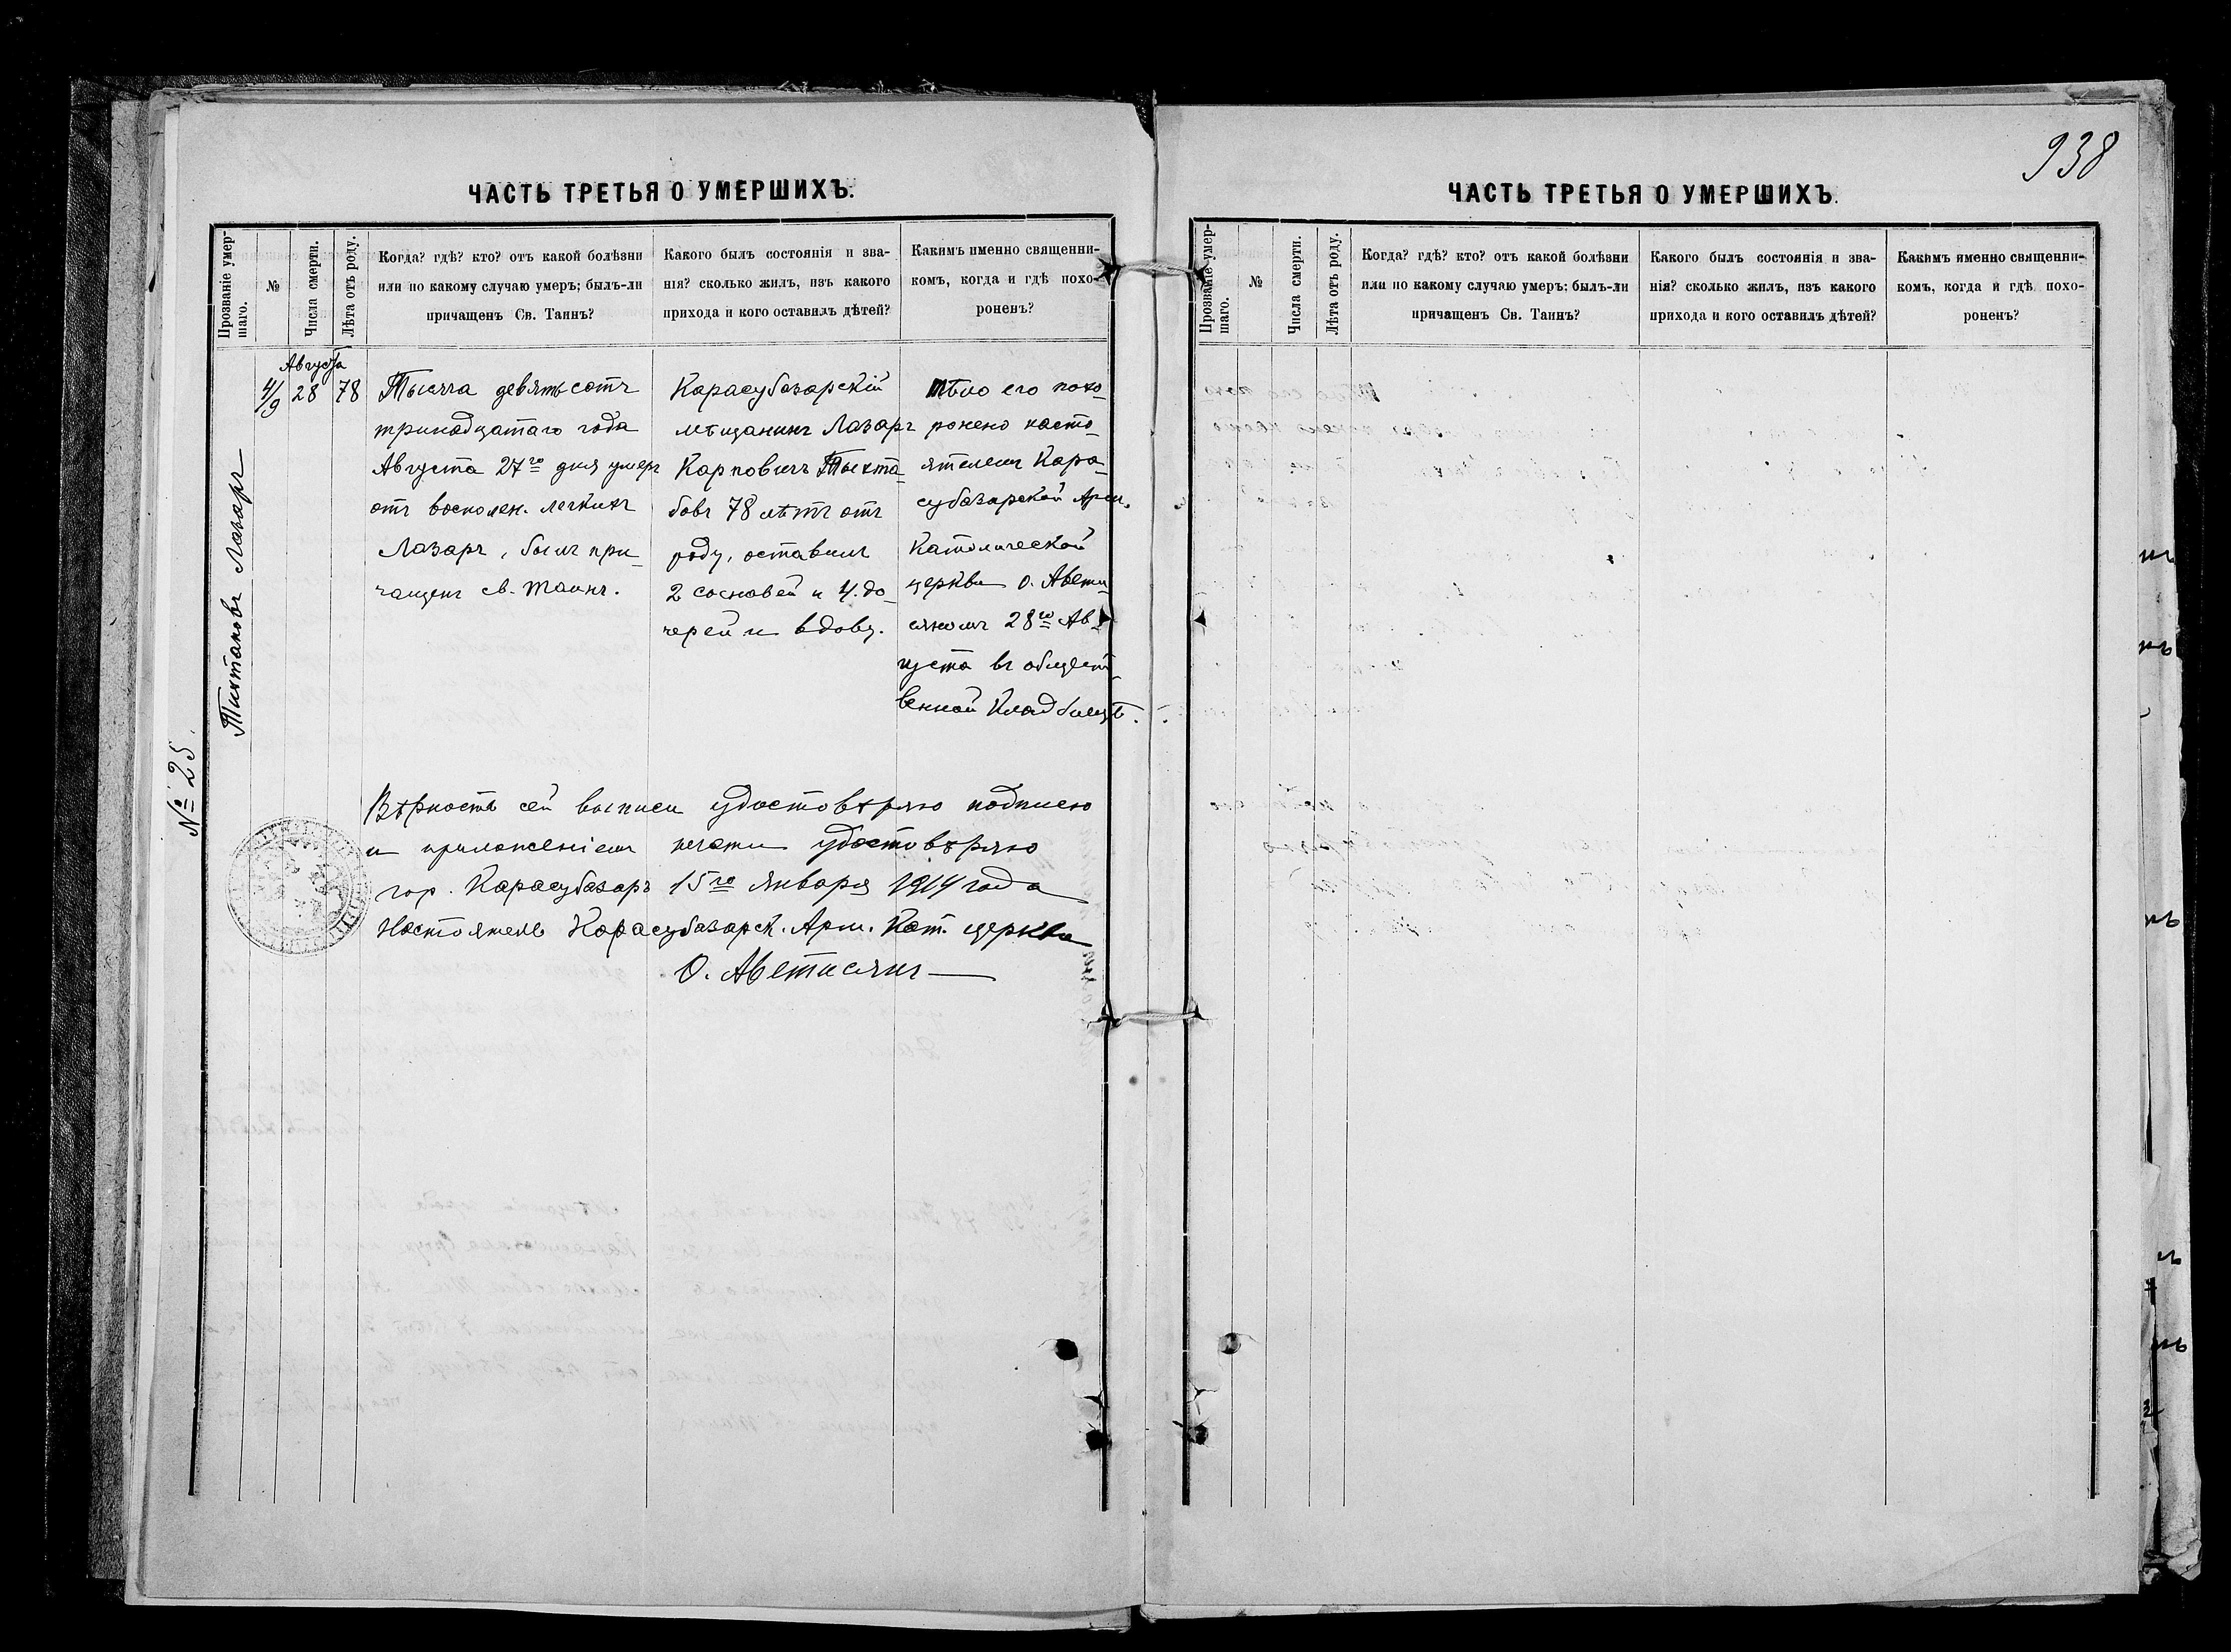 938
ЧАСТЬ ТРЕТЬЯ О УМЕРШИХЪ.
Прозваніе умер-
шаго.
№
Числа смерти.
Лѣта отъ роду.
Когда? гдѣ? кто? отъ какой болѣзни
или по какому случаю умеръ; былъ-ли
причащенъ Св. Таинъ?
Какого былъ состоянія и зва-
нія? сколько жилъ, изъ какого
прихода и кого оставилъ дѣтей?
Какимъ именно священни-
комъ, когда и гдѣ похо-
роненъ?
№ 25.
Лазаръ
4/9
Августа
28
78
Тысяча девятьсотъ
тринадцатаго года
Августа 27го дня умеръ
отъ восполен. легкихъ
Лазаръ, былъ при-
чащенъ св. Таинъ.
Карасубазарскій
мѣщанинъ Лазаръ
Карповичъ Тыхта-
бовъ 78 лѣтъ отъ
роду, оставилъ
2 сосновей и 4. до-
черей и вдову.
тѣло его похо-
ронено насто-
ятелемъ Кара-
субазарской Арм.
Католической
церкви о. Авети-
сяномъ 28го Ав-
густа въ общест-
венной Кладбищѣ.
Вѣрность сей выписи удостовѣряю подписью
и приложеніемъ печати удостовѣряю
гор. Карасубазаръ 15го Января 1914 года
Настоятель Карасубазарск. Арм. Кат. церкви
О. Аветисянъ
ЧАСТЬ ТРЕТЬЯ О УМЕРШИХЪ.
Прозваніе умер-
шаго.
№
Числа смерти.
Лѣта отъ роду.
Когда? гдѣ? кто? отъ какой болѣзни
или по какому случаю умеръ; былъ-ли
причащенъ Св. Таинъ?
Какого былъ состоянія и зва-
нія? сколько жилъ, изъ какого
прихода и кого оставилъ дѣтей?
Какимъ именно священни-
комъ, когда и гдѣ похо-
роненъ?